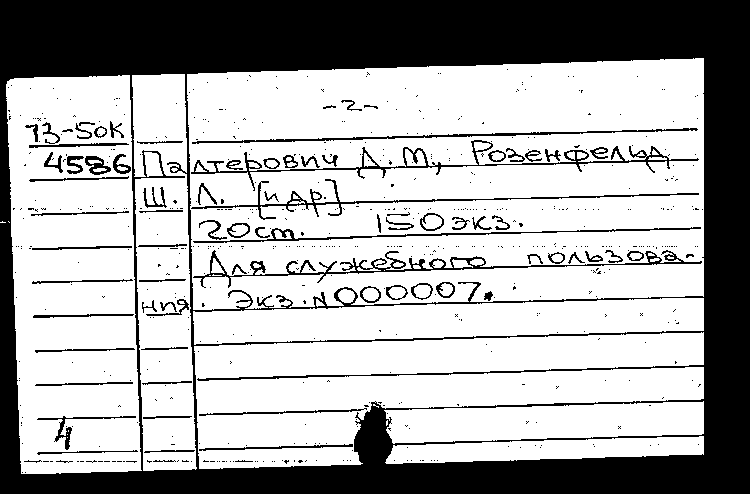 -2-
73-50К
4586 Палтерович Д. М., Розенфельд
Ш. Л. [и др.]
20cm. 150 экз.
Для служебного пользова-
ния. Экз. N 000007.
4